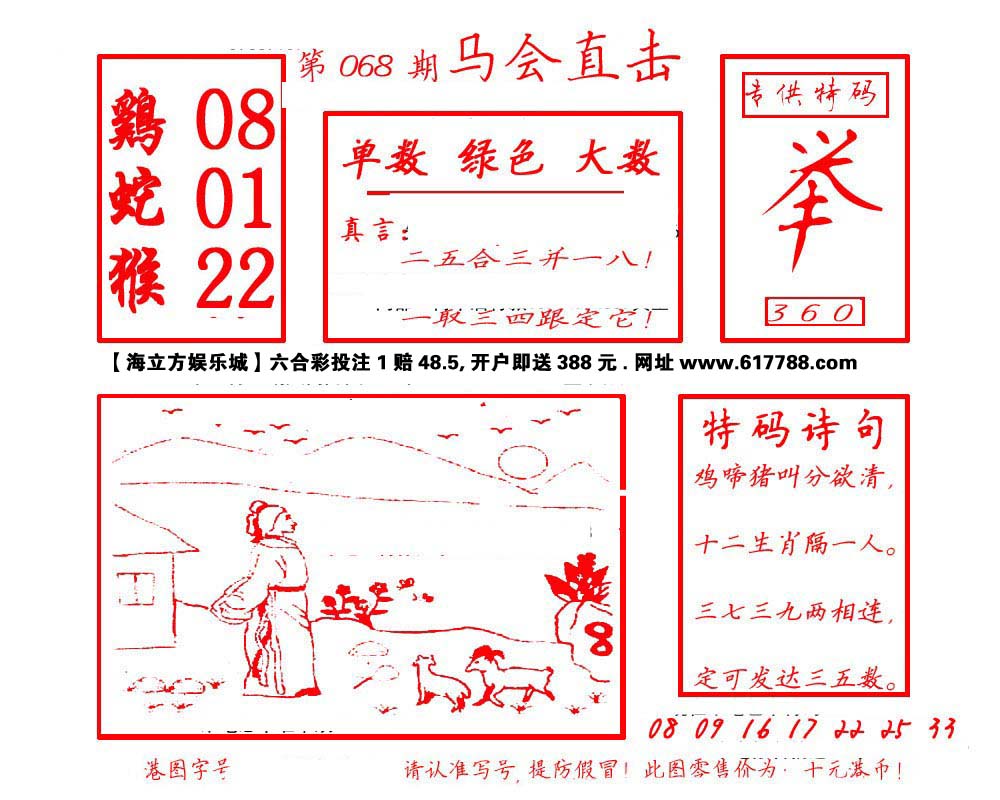 第 068 期 马会直击
鷄 08
蛇 01
猴 22
单数 绿色 大数
真言:
二五合三并一八!
一取三四跟定它!
专供特码
举
360
【海立方娱乐城】六合彩投注1赔48.5,开户即送388元.网址www.617788.com
8
特码诗句
鸡啼猪叫分欲清,
十二生肖隔一人。
三七三九两相连,
定可发达三五数。
08 09 16 17 22 25 33
港图字号
请认准写号,提防假冒!此图零售价为:十元港币!